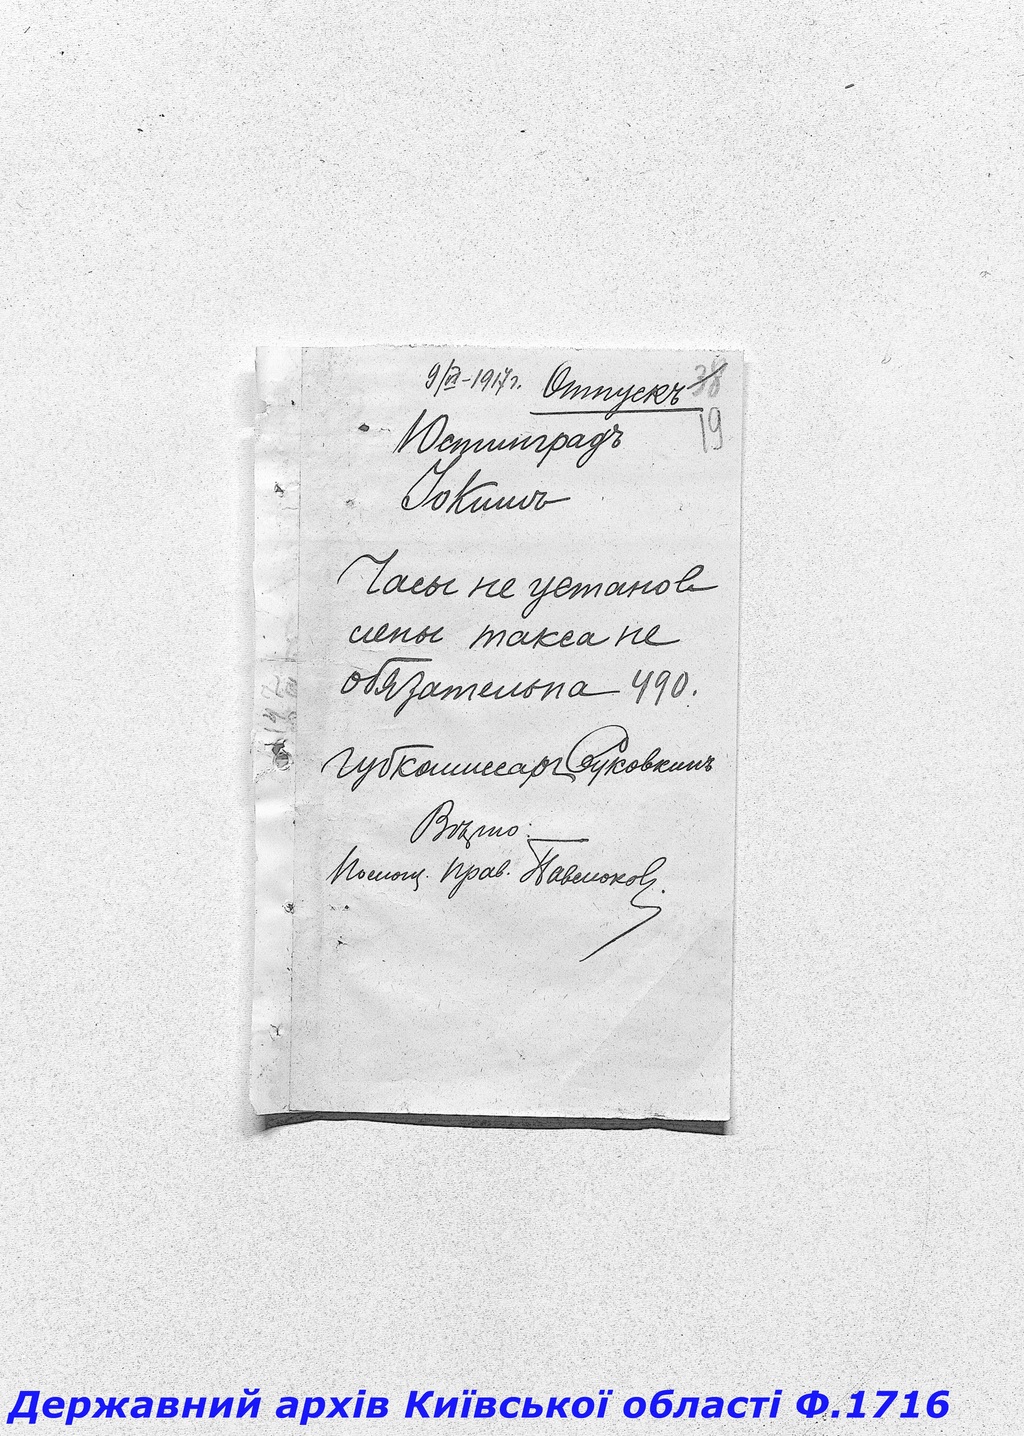 9/VI-1917 г. Отпускъ 38
19
Юстинградъ
Часы не установ
лены такса не
обязательна 490.
Губкомиссаръ Суковкинъ
Вѣрно:
Помощ. Прав.
Державний архів Київської області Ф.1716